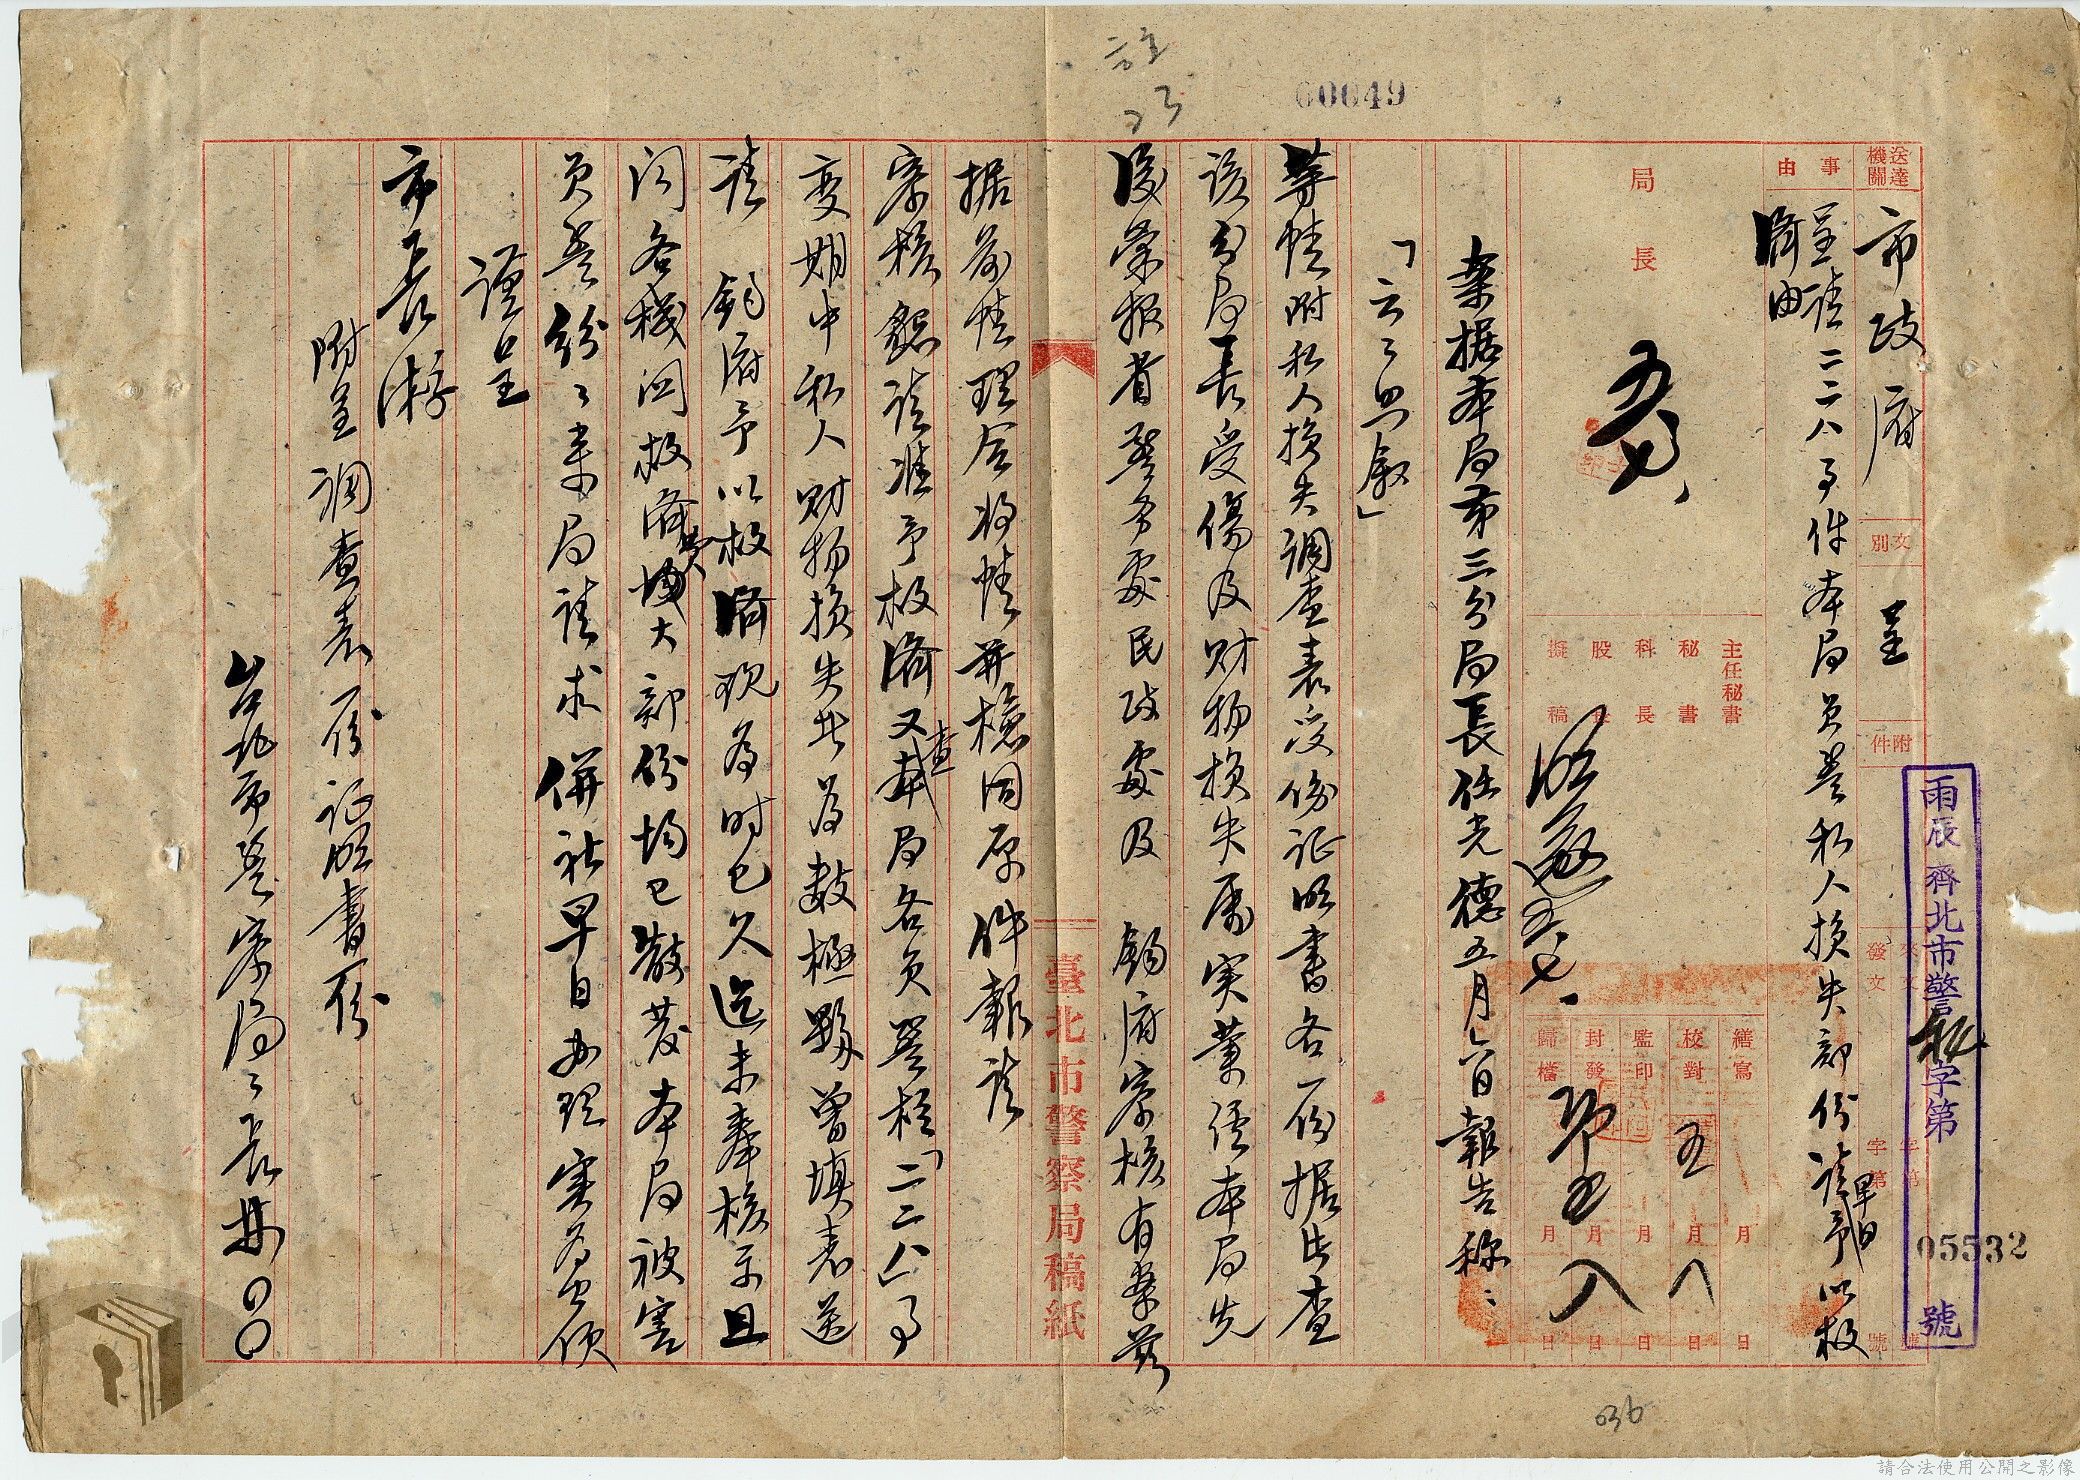 註
60049
送達機關
市政府
文別
呈
附件
發文
字第
號
雨辰齊北市警秘字第05532號
事由
呈請二二八事件本局員警私人損失部份請早日予以救
濟由
局長
主任秘書
秘書
科長
股長
擬稿
繕寫
校對
監印
封發
歸檔
月
日
五
八
案据本局第三分局長任光德五月六日報告称：
「云云照叙」
等情附私人損失調查表及證明書各一份据此查
該分局長受傷及財物損失屬实業经本局先
後彙報省警務處民政處及鈞府察核有案茲
据前情理合将情并檢同原件報請
察核懇請准予救濟又查本局各員警在「二二八」事
变期中私人财物損失者為數極夥曾填表送
請鈞府予以救濟現為时已久迄未奉核示且
闻各機関救濟費大部份均已散发本局被害
員警紛紛來局請求併祈早日办理实為公便
謹呈
市長游
附呈調查表一份證明書一份
台北市警察局局長林○○
臺北市警察局稿紙
036
請合法使用公開之影像